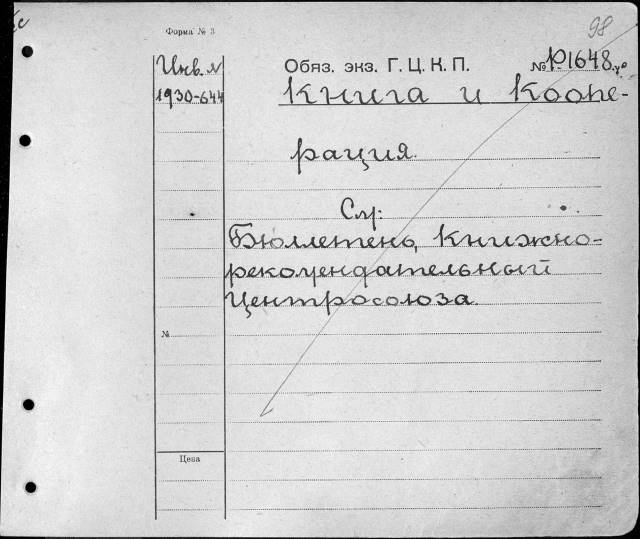 98
Форма № 3
Инв. №
1930-644
Обяз. экз. Г. Ц. К. П.
№ Р1648
Книга и Коопе-
рация.
См:
Бюллетень, Книжно-
рекомендательный
Центросоюза.
№
Цена